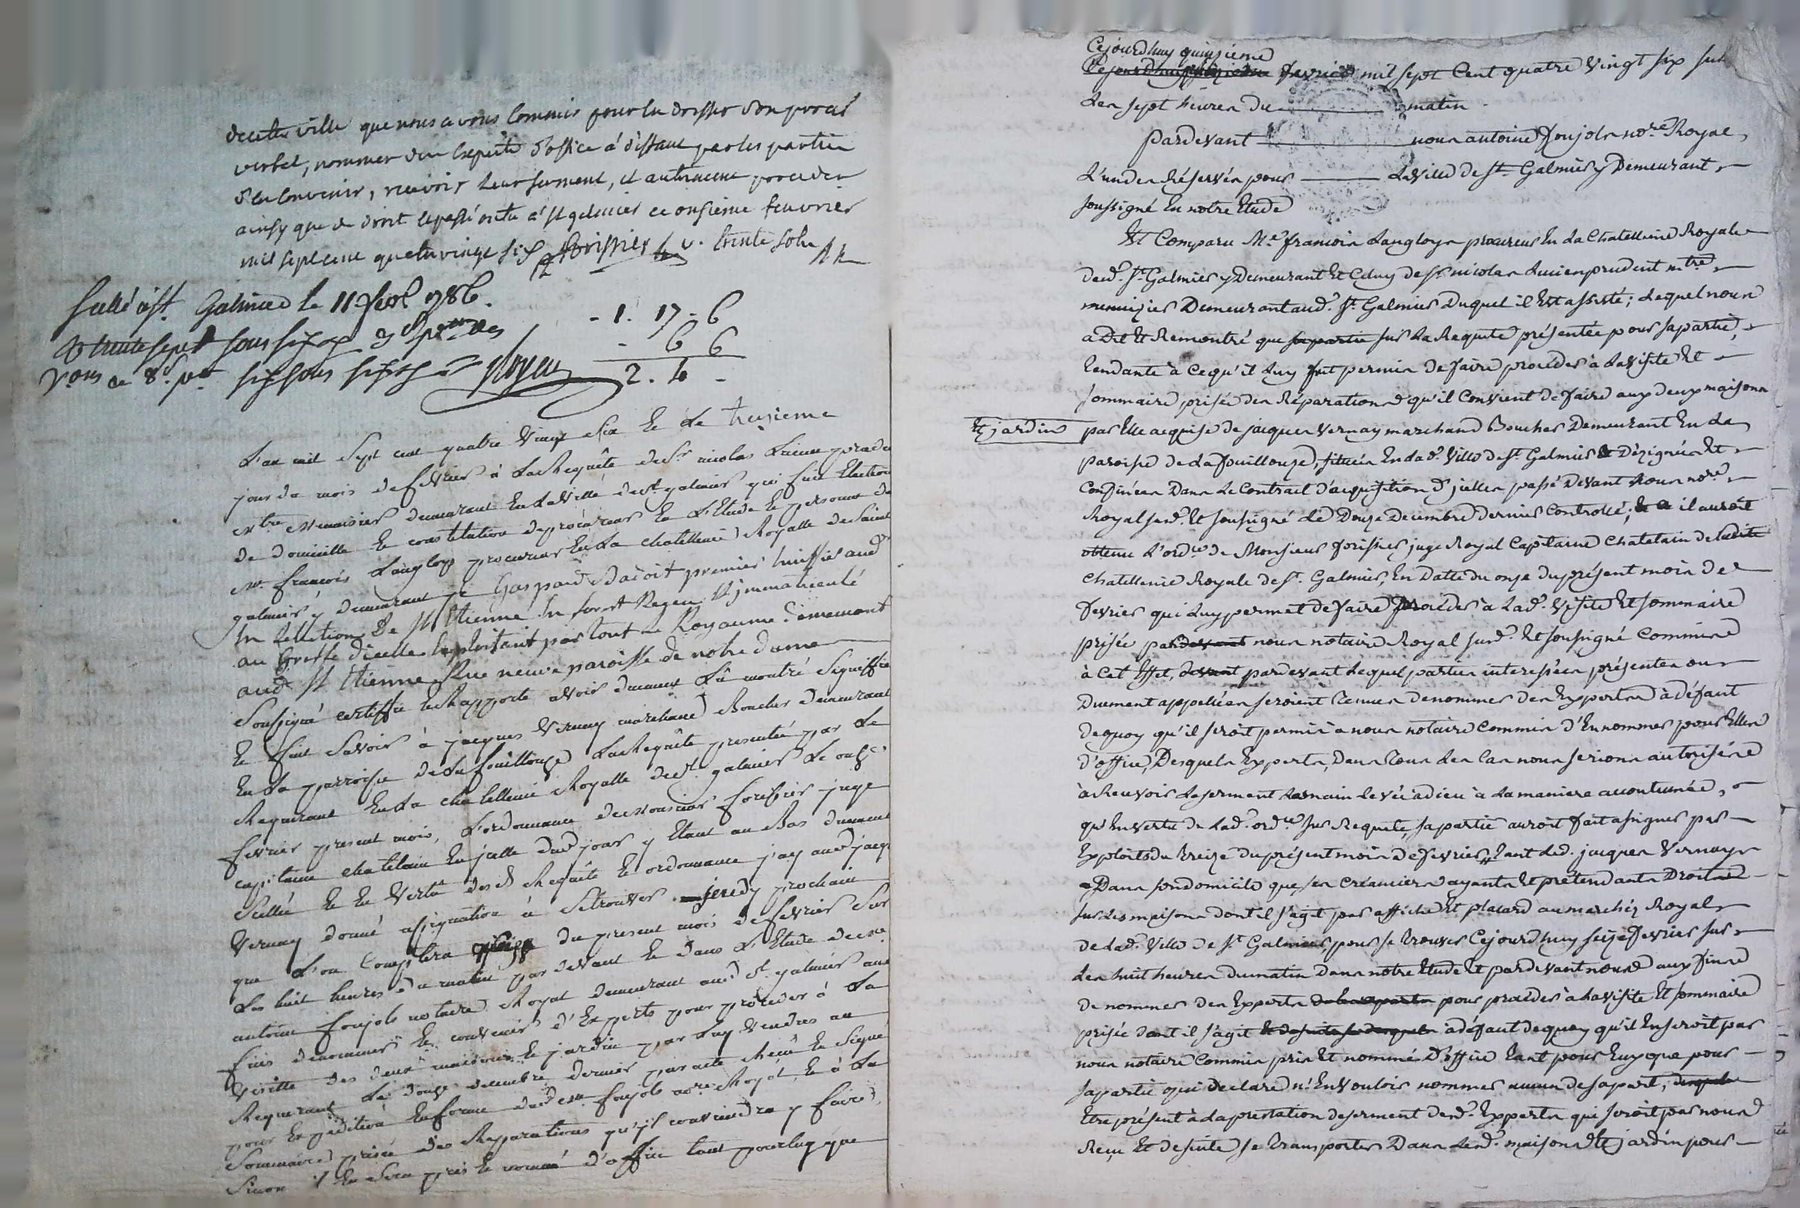 de cette ville que nous avons commis pour en dresser son procès
verbal, nommer des experts d'office à deffaut par les parties
d'en convenir, recevoir leur serment, et autrement proceder
ainsy que de droit le presente à st galmier ce onsieme feuvrier
mil sept cent quatre vingt six trente sols
Scellé à St. Galmier le 11 1786.
trente sept sous six
six sous six
- 1. 17 - 6
- 6 6
2. 4 -
L'an mil sept cent quatre vingt six et le treizieme
jour du mois de fevrier à la Requête de Sr nicolas Lucien prudent
mtre menuisier demeurant en la ville de st galmier qui fait Election
de domicille et constitution de procureur en L'Etude et personne de
Me françois Langloys procureur En la chatellenie Royalle de Saint
galmier y demeurant je Gaspard premier huissier aud
En L'Election de St Etienne En forest Reçeu et immatriculé
au Greffe d'icelle Exploitant par tout le Royaume demeurant
aud. St Etienne Rue neuve paroisse de notre dame
Soussigné certiffie et Rapporte avoir duement montré signiffié
et fait Savoir à jacques Vernay marchand Boucher demeurant
En la parroisse de La fouillouze La Requête presentée par le
Requerant En la chatellenie Royalle de st. galmier le onze
fevrier present mois, L'ordonnance de Monsieur forissier juge
capitaine chatelain En suitte dud jour y Etant au Bas duement
Scellée Et En Vertu desd. Requête et ordonnance j'ay aud jacq.
Vernay donné assignation à se trouver jeudy prochain
que L'on Comptera du present mois de fevrier sur
Les huit heures du matin par devant et dans L'Etude de me
antoine foujols notaire Royal demeurant aud st. galmier aux
fins de nommer et convenir d'Experts pour proceder à La
Visitte des deux maisons et jardin par luy Vendues au
Requerant Le douze decembre dernier par acte Reçu et signé
pour Expedition En forme dud me foujols nore Royal, et à La
Sommaire prisée des Reparations qu'il conviendra y faire,
Sinon il En sera pris et nommé d'office tant pour luy que
Cejourd'huy quinzieme
fevrier mil sept Cent quatre vingt six sur
Les sept heures du matin
pardevant nous antoine foujols nore Royal,
La ville de St. Galmier y Demeurant
soussigné En notre Etude
Est Comparu Me. francois Langloys procureur En La Chatellenie Royale
dud. St Galmier y Demeurant Et Celuy de Sr nicolas Lucien prudent mtre
menuisier Demeurant aud. St. Galmier Duquel il Est assisté; Lequel nous
a Dit Et Remontré que sa partie sur La Requete présentée pour sa partie,
tendante à Ce qu'il Luy fut permis de faire proceder à La visite Et
sommaire prisée des Réparations qu'il Convient de faire aux deux maisons
Et jardin par Elle acquise de jacques Vernay marchand Boucher Demeurant En La
paroisse de La fouillouze, situées En lad. Ville de St Galmier Et Désignées Et
Confinées Dans Le Contrat d'acquisition d'icelles passé Devant Nous nore
Royal susd. Et soussigné Le Douze Decembre dernier Controllé; il auroit
obtenu L'ordce de Monsieur forissier juge Royal Capitaine Chatelain de Ladite
Chatellenie Royale de St. Galmier, En Datte du onze du présent mois De
fevrier qui Luy permet de faire proceder à Lad. Visite Et sommaire
prisée pardevant nous notaire Royal susd. Et soussigné Commis
à Cet Effet, devant pardevant Lequel parties interessées présentes ou
Duement appellées seroient tenues de nommer des Experts à défaut
de quoy qu'il seroit permis à nous notaire Commis d'En nommer pour Elles
d'office, Desquels Experts, Dans tous Les Cas nous serions autorisé
à Recevoir Le serment La main Levée à dieu à La maniere accoutumée,
qu'En vertu de Lad. ordce sur Requete, sa partie auroit fait assigner par
Exploits du treize du présent mois de fevrier, tant Led. jacques Vernay
Dans son domicile que ses Créanciers ayants Et prétendants Droits
sur Les maisons dont il s'agit par affiche Et placard au marché Royal
de Lad. Ville de St Galmier, pour se trouver Cejourd'huy seize fevrier sur
Les huit heures du matin Dans notre Etude Et pardevant nous aux fins
de nommer des Experts pour proceder à La visite Et sommaire
prisée dont il s'agit à défaut de quoy qu'il En seroit par
nous notaire Commis pris Et nommé D'office tant pour Eux que pour
sa partie qui déclare n'En vouloir nommer aucun de sa part,
Etre présent à La prestation de serment desd. Experts qui seroit par nous
Reçu Et de suite se transporter Dans Lesd. maisons Et jardin pour